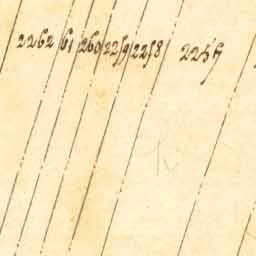 2262 61 260 2259 2258 2257